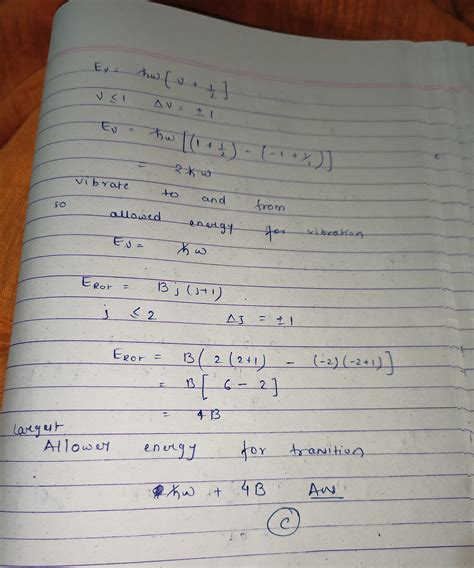 Ev = ħω [ v + 1/2 ]
v ≤ 1 Δv = ± 1
Ev = ħω [(1 + 1/2) - (-1 + 1/2)]
= 2ħω
vibrate to and from
so allowed energy for vibration
Ev = ħω
EROT = B j (j+1)
j ≤ 2 ΔJ = ± 1
EROT = B( 2 (2+1) - (-2)(-2+1)]
= B[ 6 - 2 ]
= 4B
Largest
Allower energy for tranition
ħω + 4B Ans
C